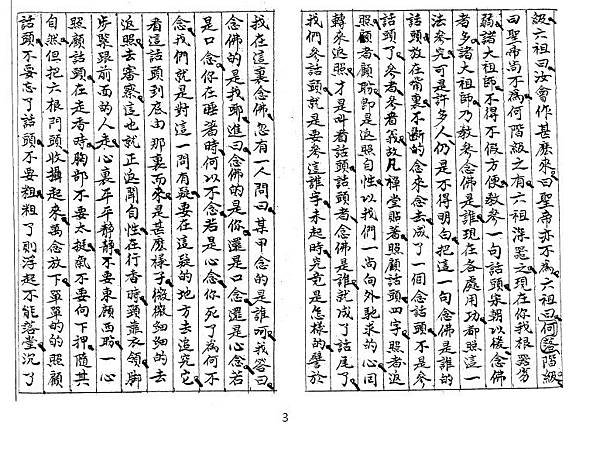 級六祖曰汝會作甚麼來曰聖帝亦不為六祖曰何落階級
曰聖帝尚不為何階級之有六祖深器之現在你我根器劣
弱諸大祖師不得不假方便教參一句話頭宋朝以後念佛
者多諸大祖師乃教參念佛是誰現在各處用功都照這一
法參究可是許多人仍是不得明白把這一句念佛是誰的
話頭放在嘴裏不斷的念來念去成了一個念話頭不是參
話頭了參者參看義故凡禪堂照著照顧話頭四字照者返
照顧者顧盼即是返照自性以我們一向向外馳求的心回
轉來返照才是叫看話頭話頭者念佛是誰就成了話尾了
我們參話頭就是要參這誰字未起時究竟是怎樣的譬於
我在這裏念佛忽有一人問曰某甲念的是誰呵我答曰
念佛的是我耶進曰念佛的是你還是口念還是心念若
是口念你在睡着時何以不念若是心念你死了為何不
念我們就是對這一問有疑要在這疑的地方去追究它
看這話頭到底由那裏而來是甚麼樣子微微細細的去
返照去審察這也就正返聞自性在行香時頸靠衣領腳
步緊跟前面的人走心裏平平靜靜不要東顧西盼一心
照顧話頭在走香時胸部不要太挺氣不要向下押隨其
自然但把六根門頭收攝起來萬念放下單單的的照顧
話頭不要忘了話頭不要粗粗了則浮起不能落堂沉了
3